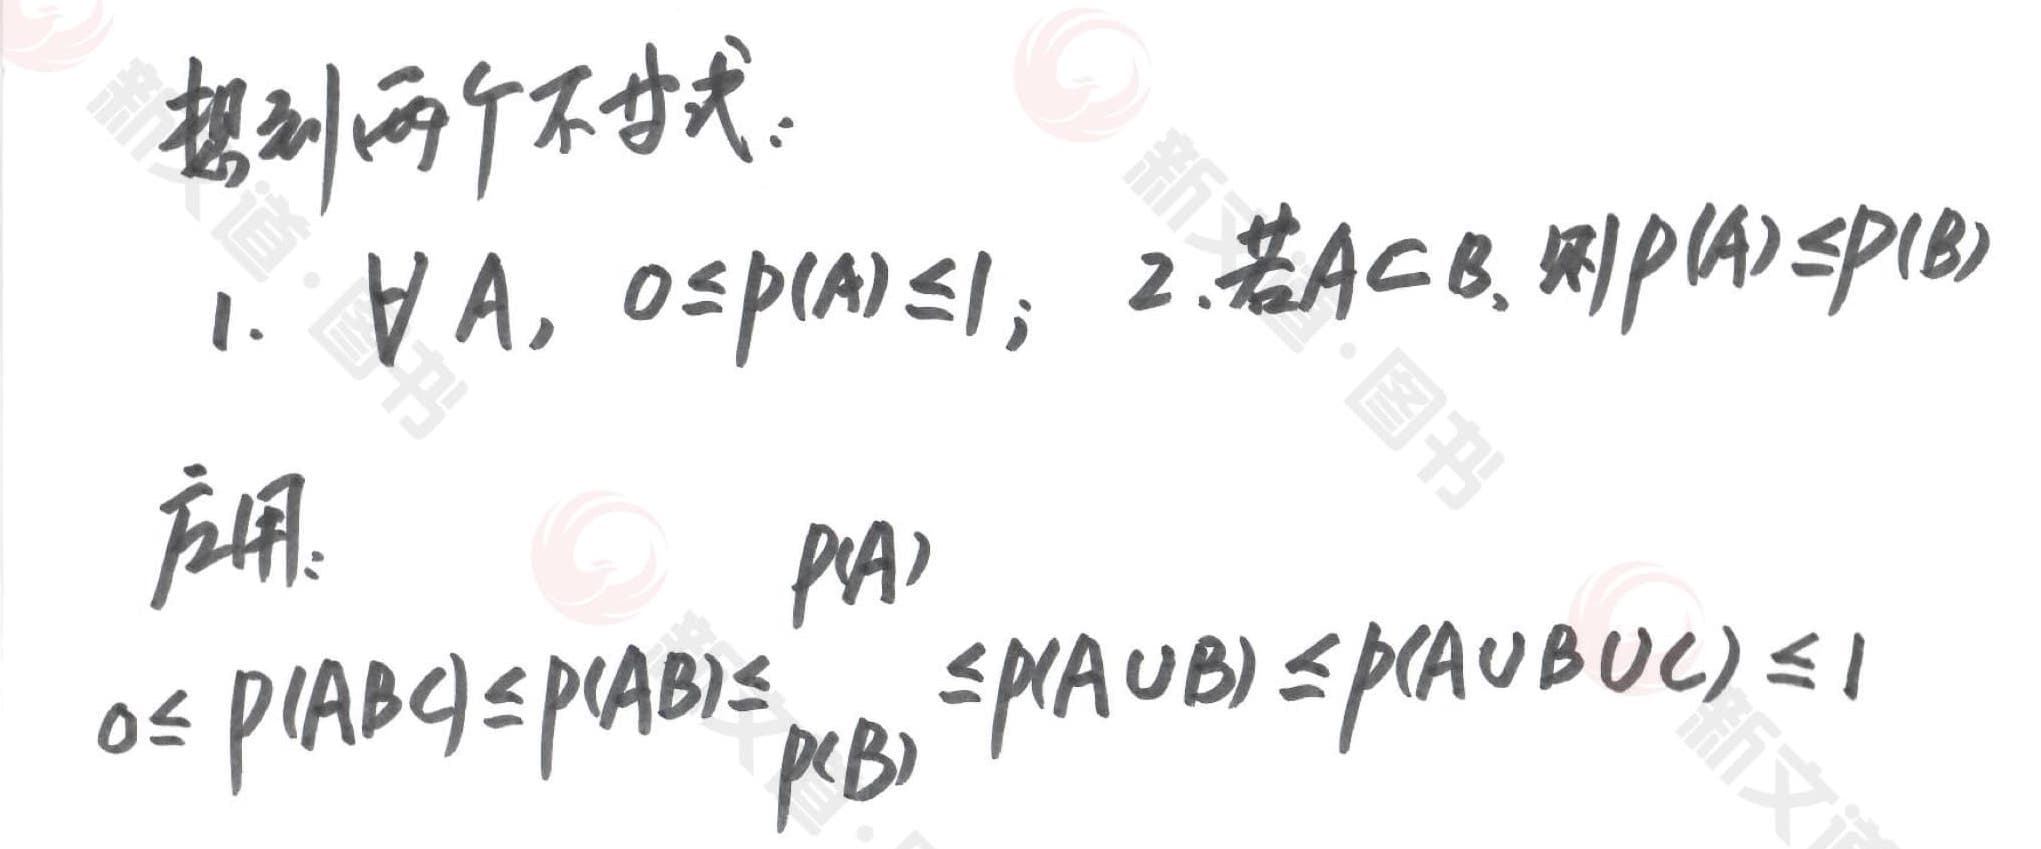 想到两个不等式:
1. ∀A, 0≤P(A)≤1; 2.若A⊂B,则P(A)≤P(B)
应用:
P(A)
0≤P(ABC)≤P(AB)≤ ≤P(A∪B)≤P(A∪B∪C)≤1
P(B)
新文道·图书
新文道·图书
新文道·图
新文道